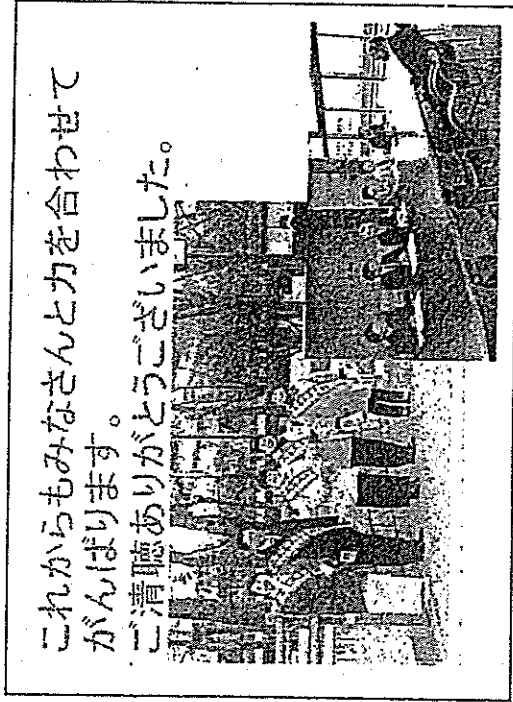 これからもみなさんと力を合わせて
がんばります。
ご清聴ありがとうございました。